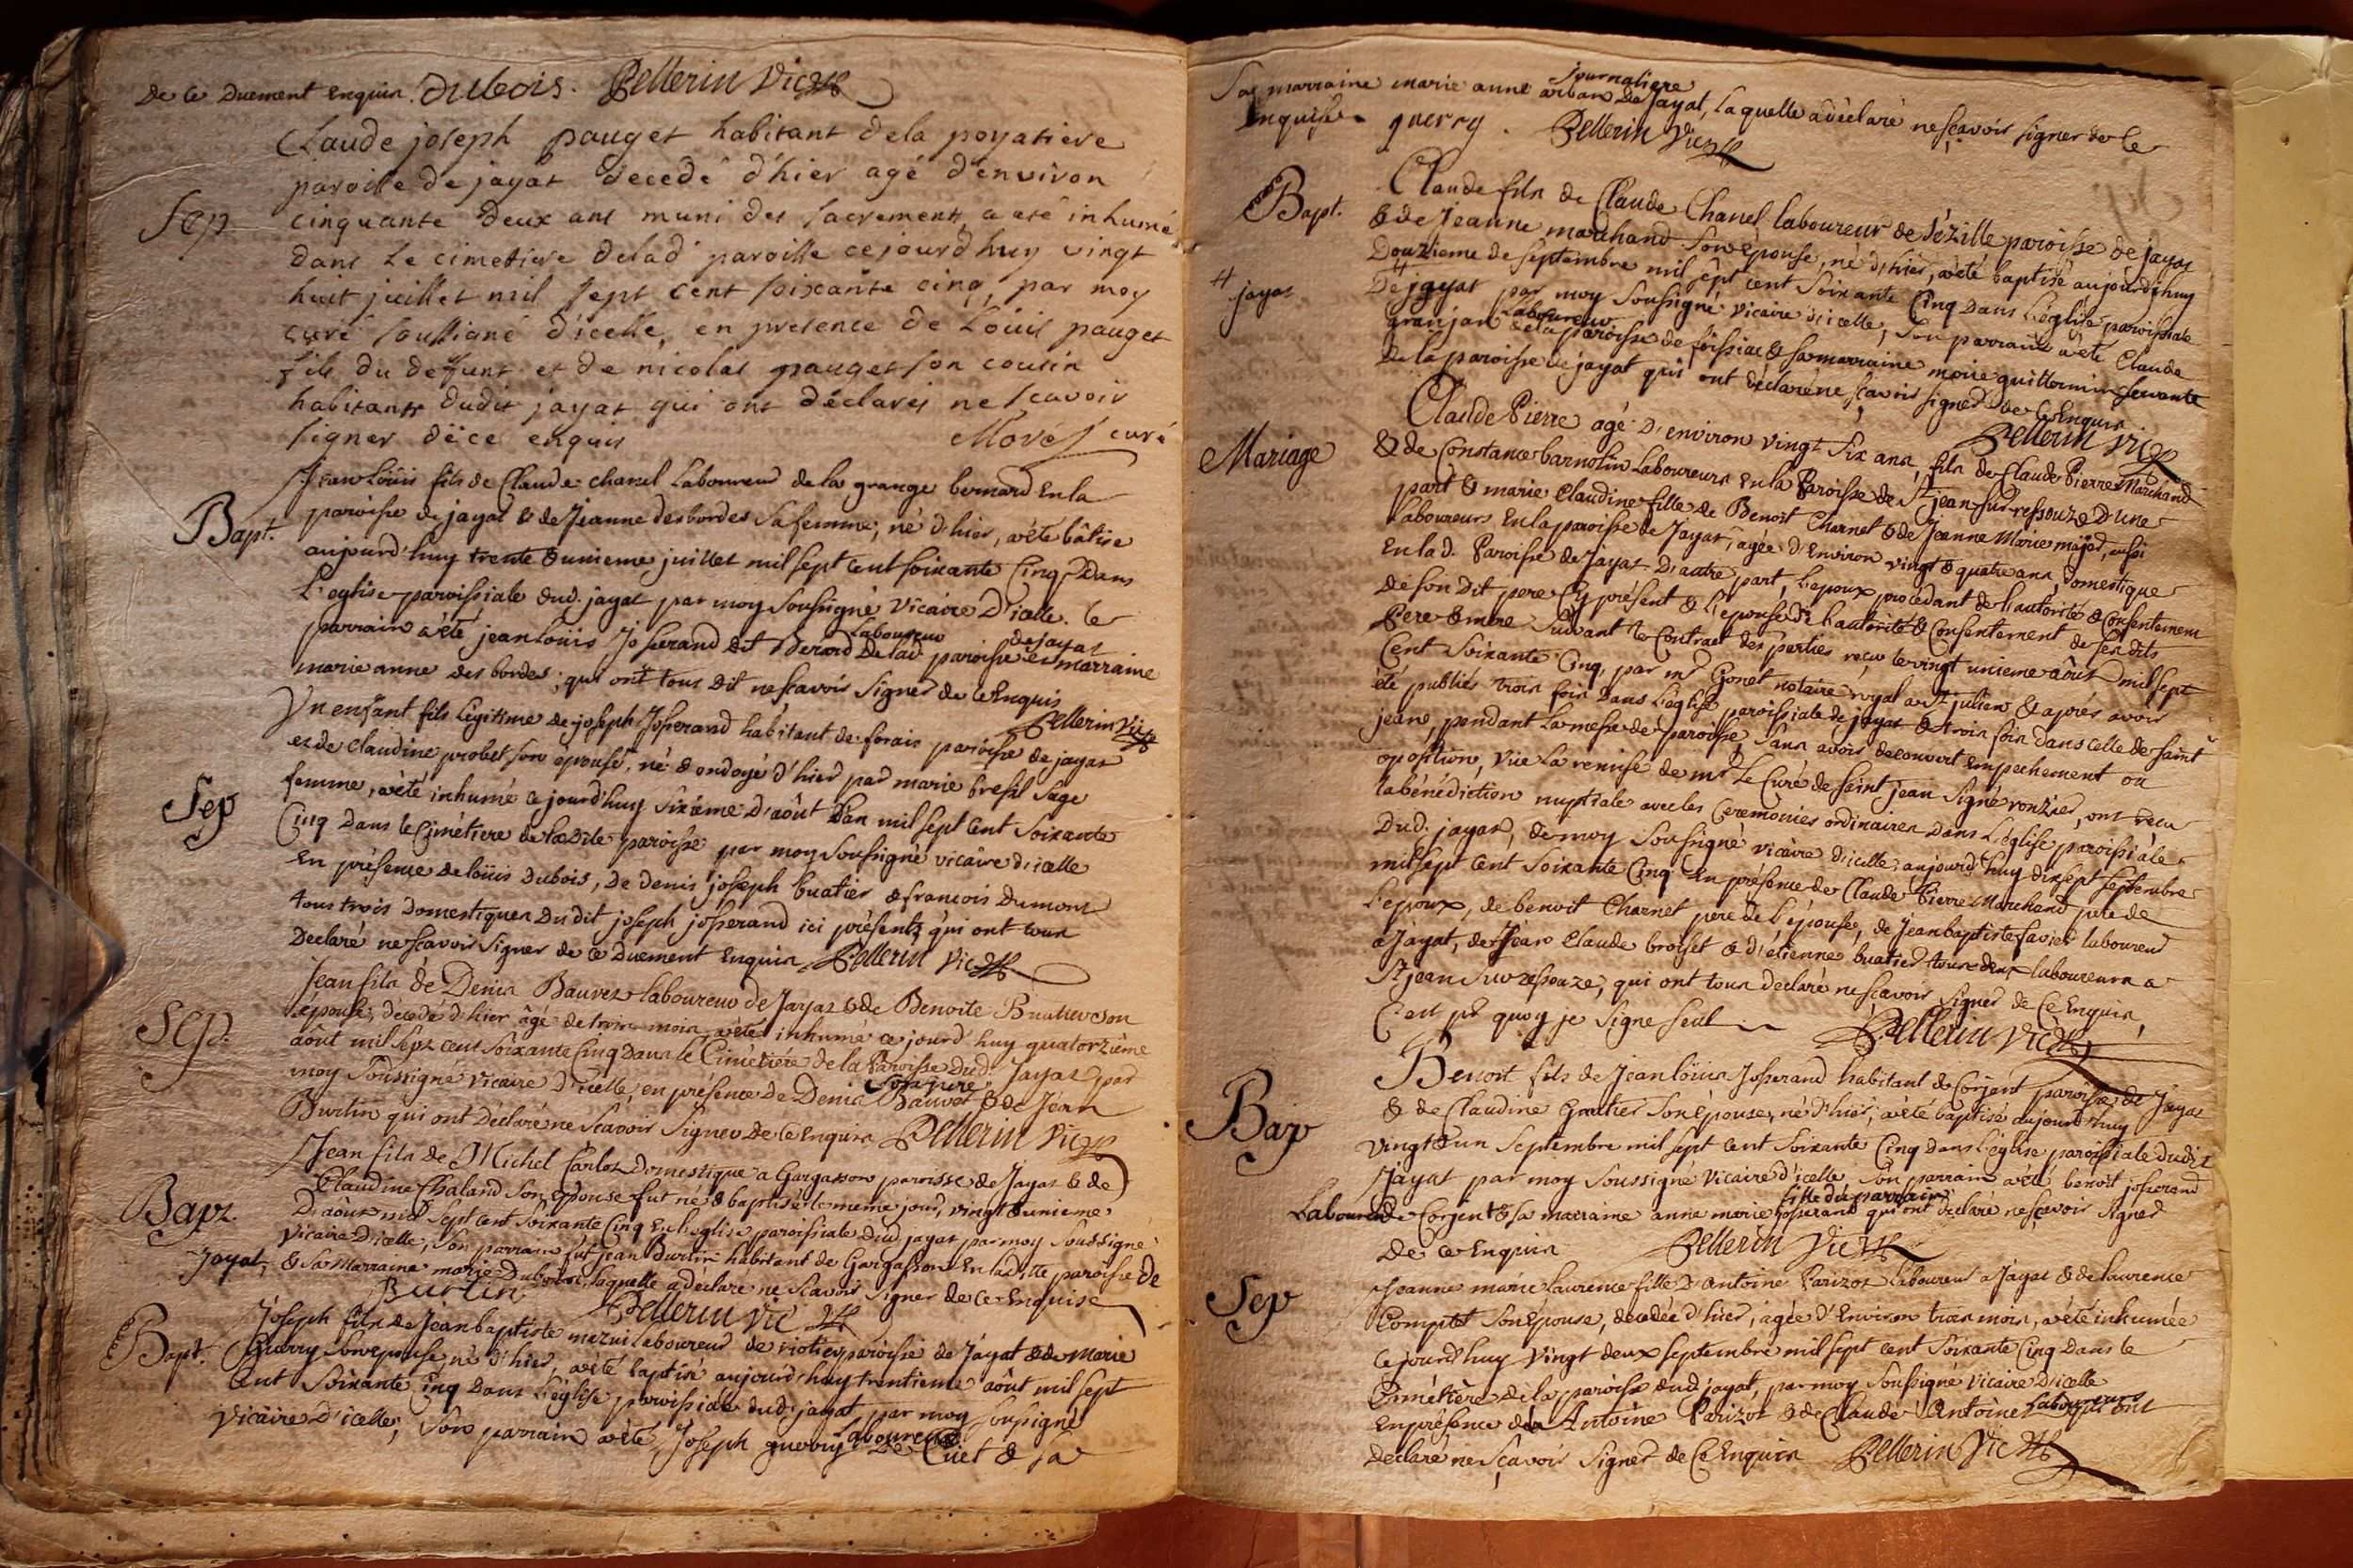 de ce duement enquis. Dubois. Pellerin vic.
Claude joseph pauget habitant dela poyatiere
paroisse de jayat decedé d'hier agé d'environ
Sep cinquante deux ans muni des sacrements a eté inhumé
dans le cimetiere delad paroisse cejourdhuy vingt
huit juillet mil sept cent soixante cinq, par moy
curé soussigné d'icelle, en presence de Loüis pauget
fils du deffunt et de nicolas pauget son cousin
habitants dudit jayat qui ont déclarés ne scavoir
signer dece enquis curé
Jean Loüis fils de Claude chanel Laboureur de la grange bernard en la
Bapt. paroisse de jayat & de Jeanne desbordes sa femme, né d'hier, a été bâtisé
aujourd'huy trente & unieme juillet mil sept cent soixante Cinq Dans
L'eglise paroissiale dud. jayat par moy soussigné vicaire D'icelle. le
parrain a été jean loüis Josserand dit Berard Laboureur delad paroisse de jayat et marraine
marie anne des bordes, qui ont tous dit ne scavoir signer de ce Enquis
Pellerin Vic
Un enfant fils légitime de joseph Josserand habitant de forais paroisse de jayat
et de claudine probet son épouse, né & ondoyé d'hier par marie bresil sage
Sep femme, a été inhumé ce jourd'huy sixieme d'août l'an mil sept cent soixante
Cinq Dans le Cimétiere de ladite paroisse par moy soussigné vicaire d'icelle
En présence de loüis Dubois, de denis joseph buatier & francois Dumont
tous trois Domestiques du dit joseph josserand ici présents qui ont tous
Declaré ne scavoir signer de ce Duement Enquis Pellerin vic
Jean fils de Denis Bauvet laboureur de Jayat & de Benoite
Sep. l'épouse, décedé d'hier âgé de trois mois, a été inhumé ce jourd'huy quatorzième
août mil sept cent soixante Cinq Dans le Cimétiére de la Paroisse Dud. Jayat par
moy soussigné vicaire D'icelle, en présence de Denis Bauvet & de Jean
Burtin qui ont Déclaré ne scavoir signer de ce enquis Pellerin Vic
Jean fils de Michel Carlot Domestique a Gargasson paroisse de Jayat & de
Bapt. Claudine Chaland son épouse fut né & baptisé le meme jour, vingt & unieme
D'août mil sept cent soixante Cinq En L'église paroissiale dud. jayat par moy soussigné
Vicaire D'icelle, son parrain fut Jean Burtin habitant de Gargasson en ladite paroisse de
Jayat, & sa Marraine marie Dubois, laquelle a declaré ne scavoir signer de ce Enquise
Burtin Pellerin vic
Joseph fils de Jean baptiste mazui laboureur de paroisse de Jayat & de Marie
Bapt. Guerry son epouse, né d'hier, a été baptisé aujourd'huy trentieme août mil sept
Cent Soixante Cinq Dans L'église paroissiale dud. jayat par moy soussigné
Vicaire D'icelle, son parrain a été Joseph guerry Laboureur De Cuet & sa
Sa marraine marie anne journaliere de Jayat, laquelle a déclaré ne sçavoir signer de ce
Enquise. guerry. Pellerin Vic
Bapt. Claude fils de Claude Chanel laboureur de Sézille paroisse de jayat
& de Jeanne marchand son épouse, né d'hier, a été baptisé aujourd'huy
Douzieme de septembre mil sept cent Soixante Cinq dans l'église paroissiale
jayat De jayat par moy soussigné vicaire d'icelle, son parrain a été Claude
granjan Laboureur de la paroisse de foissiac & sa marraine guillermin servante
de la paroisse de jayat qui ont déclaré ne scavoir signer de ce Enquis
Pellerin Vic
Mariage Claude Pierre agé D'environ vingt Six ans, fils de Claude Pierre Marchand
& de Constance barnolin Laboureurs En la Paroisse de St jean sur ressouze D'une
part & marie Claudine fille de Benoit Charnet & de Jeanne Marie aussi
Laboureurs En la paroisse de Jayat, agée d'Environ vingt & quatre ans, domestique
En lad. Paroisse de Jayat D'autre part, L'epoux procédant de l'autorité & Consentement
de son Dit pere Cy présent & l'épouse de l'autorité & Consentement de ses dits
Pere & mere Suivant le Contract des parties reçu le vingt unieme août mil sept
Cent Soixante Cinq, par mr Gonet notaire royal a St julien & aprés avoir
été publiés trois fois Dans L'église paroissiale de jayat & trois fois dans celle de saint
jean, pendant la messe de paroisse, Sans avoir decouvert Empechement ou
oposition, vüe la remise de mr Le Curé de Saint jean signé ronzier, ont recu
la bénédiction nuptiale avec les Ceremonies ordinaires Dans L'église paroissiale
Dud. jayat, de moy Soussigné vicaire d'icelle, aujourd'huy dixsept septembre
mil sept cent soixante Cinq En présence de Claude Pierre Marchand pere de
L'epoux, de benoit Charnet pere de L'épouse, de Jean baptiste favier laboureur
a Jayat, de Jean Claude broiset & d'etienne buatier tous deux laboureurs a
St jean sur ressouze, qui ont tous declaré ne sçavoir signer de Ce Enquis,
C'est pr quoy je signe seul Pellerin vic
Benoit fils de Jean loüis Josserand habitant de Corjent paroisse de Jayat
Bap & de Claudine Gratier son épouse, né d'hier, a été baptisé aujourd'huy
Vingt & un Septembre mil sept cent Soixante Cinq dans l'église paroissiale dudit
Jayat par moy soussigné Vicaire d'icelle, Son parrain a été benoit josserand
Laboureur de Corgent & sa marraine anne marie josserand fille du parrain qui ont déclaré ne scavoir signer
De ce Enquis Pellerin Vic
Jeanne marie Laurence fille D'antoine Parizot Laboureur a Jayat & de laurence
Sep Comptet son Epouse, decedée d'hier, agée d'Environ trois mois, a été inhumée
Ce jourd'huy vingt deux septembre mil sept cent Soixante Cinq Dans le
Cimétière de la paroisse dud jayat, par moy soussigné Vicaire D'icelle
En présence de Antoine Parizot & de Claude Antoine Laboureurs qui ont
déclaré ne sçavoir signer de Ce Enquis Pellerin Vic